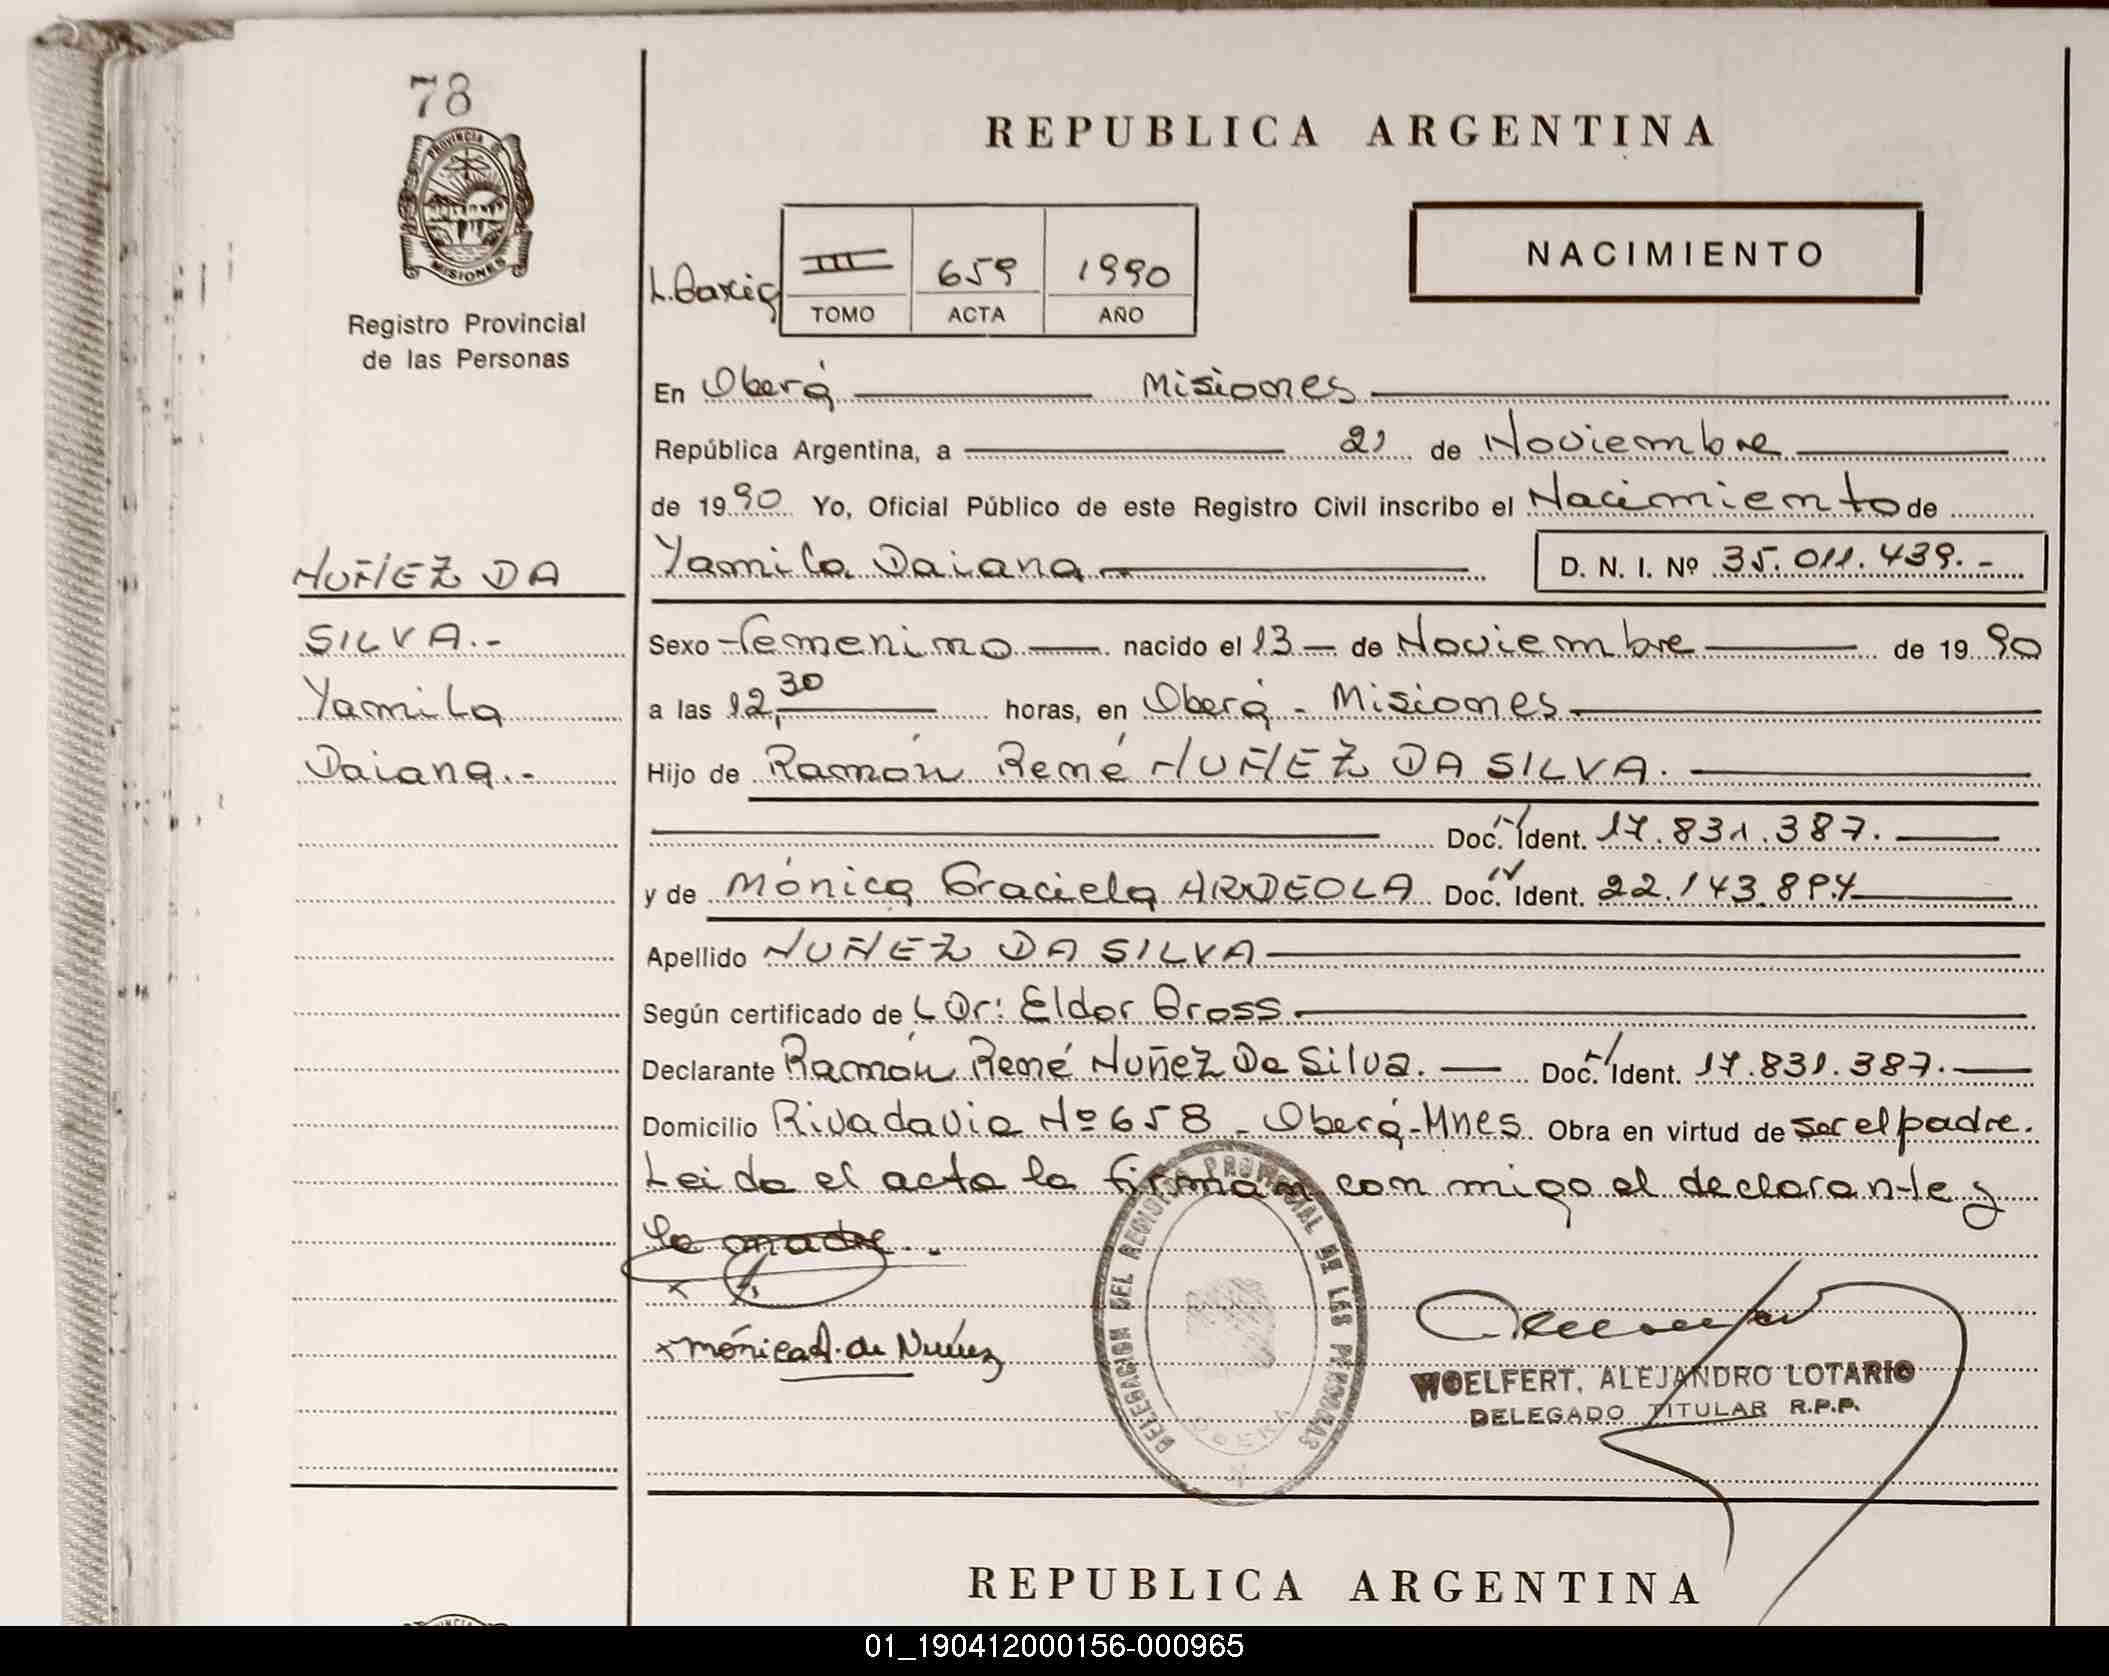 78
PROVINCIA DE
MISIONES
Registro Provincial
de las Personas
NUÑEZ DA
SILVA.-
Yamila
Daiana.-
REPUBLICA ARGENTINA
NACIMIENTO
III 659 1990
TOMO ACTA AÑO
En Oberá Misiones
República Argentina, a 21 de Noviembre
de 1990 Yo, Oficial Público de este Registro Civil inscribo el Nacimiento de
Yamila Daiana D. N. I. Nº 35.011.439.-
Sexo Femenino nacido el 13 de Noviembre de 1990
a las 12,30 horas, en Oberá - Misiones
Hijo de Ramón René NUÑEZ DA SILVA.
Doc. Ident. 17.831.387.
y de Mónica Graciela Doc. Ident. 22.143.894
Apellido NUÑEZ DA SILVA
Según certificado de L Dr: Eldor Gross
Declarante Ramón René Nuñez Da Silva. Doc. Ident. 17.831.387.
Domicilio Rivadavia Nº 658 - Oberá-Mnes. Obra en virtud de ser el padre.
Leida el acta la firman con migo el declarante y
la madre.
x
x Mónica A. de Nuñez
DELEGACION DEL REGISTRO PROVINCIAL DE LAS PERSONAS
OBERA
WOELFERT, ALEJANDRO LOTARIO
DELEGADO TITULAR R.P.P.
REPUBLICA ARGENTINA
01_190412000156-000965